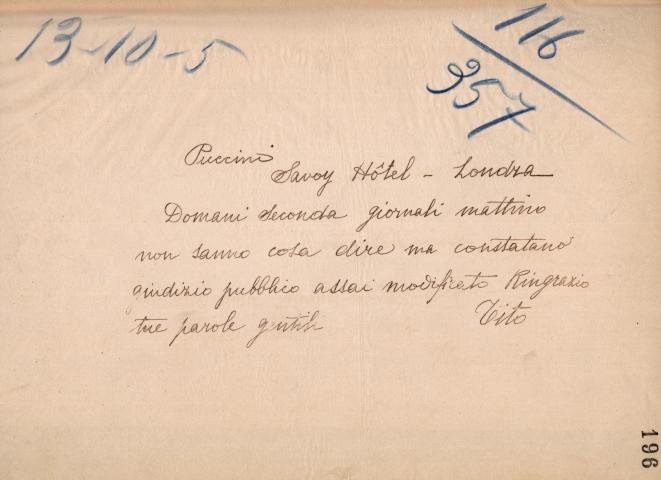 13-10-5
116
357
Puccini
Savoy Hôtel - Londra
Domani seconda giornali mattino
non sanno cosa dire ma constatano
giudizio pubblico assai modificato Ringrazio
tue parole gentili
Tito
196